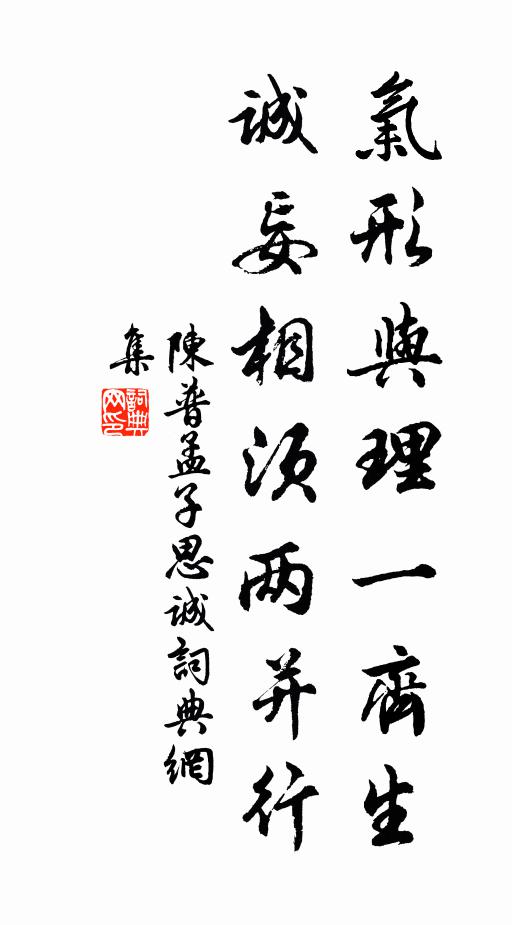 氣形與理一齊生
誠妄相須两并行
陳普孟子思誠詞典網
集
詞典网印